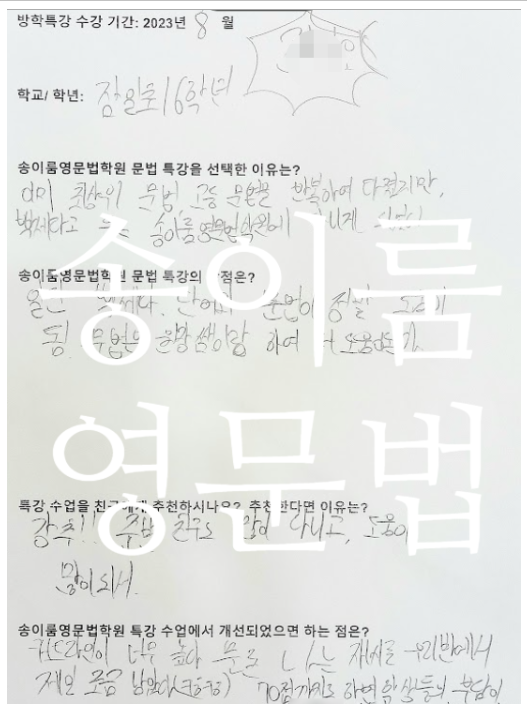 방학특강 수강 기간: 2023년 8 월
학교/ 학년: 잠일초/6학년
송이룸영문법학원 문법 특강을 선택한 이유는?
이미 최상위 문법, 고등 문법을 반복하여 다졌지만,
빡세다고 송이룸영문법학원에
송이룸영문법학원 문법 특강의 장점은?
일단 빡세다. 단어와 문법이 정말
됨. 문법은 하여 더 도움
특강 수업을 친구에게 추천하시나요? 추천한다면 이유는?
강추!! 주변 친구도 많이 다니고, 도움이
많이 되서.
송이룸영문법학원 특강 수업에서 개선되었으면 하는 점은?
커트라인이 너무 높다 물론 나는 우리반에서
제일 조금 남았다 70점까지로 하면 학생들의 부담이
송이룸
영문법